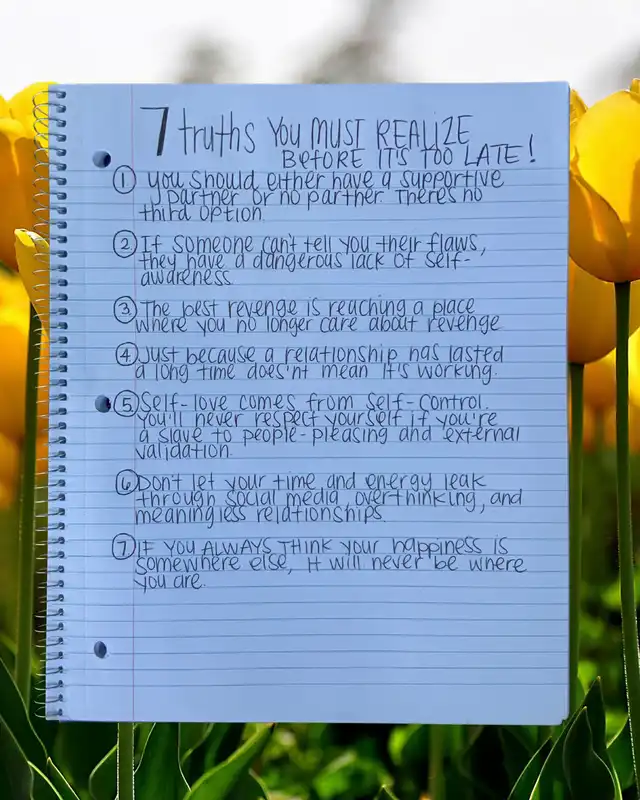 7 truths YOU MUST REALIZE
BEFORE IT'S TOO LATE!
1 You should either have a supportive
partner or no partner. There's no
third option.
2 If someone can't tell you their flaws,
they have a dangerous lack of self-
awareness.
3 The best revenge is reaching a place
where you no longer care about revenge
4 Just because a relationship has lasted
a long time does'nt mean it's working.
5 Self-love comes from self-control.
You'll never respect yourself if you're
a slave to people-pleasing and external
validation.
6 Don't let your time and energy leak
through social media, overthinking, and
meaningless relationships.
7 IF YOU ALWAYS THINK your happiness is
somewhere else, it will never be where
you are.